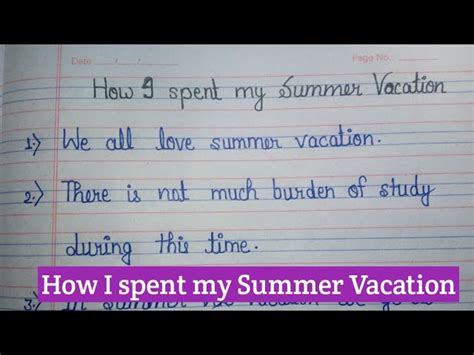 Date / / Page No.:
How I spent my Summer Vacation
1.) We all love summer vacation.
2.) There is not much burden of study
during this time.
How I spent my Summer Vacation
3.) In summer